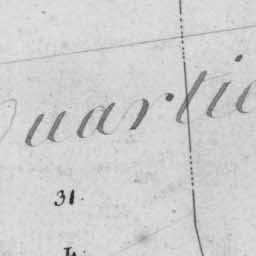 Quartie
31.